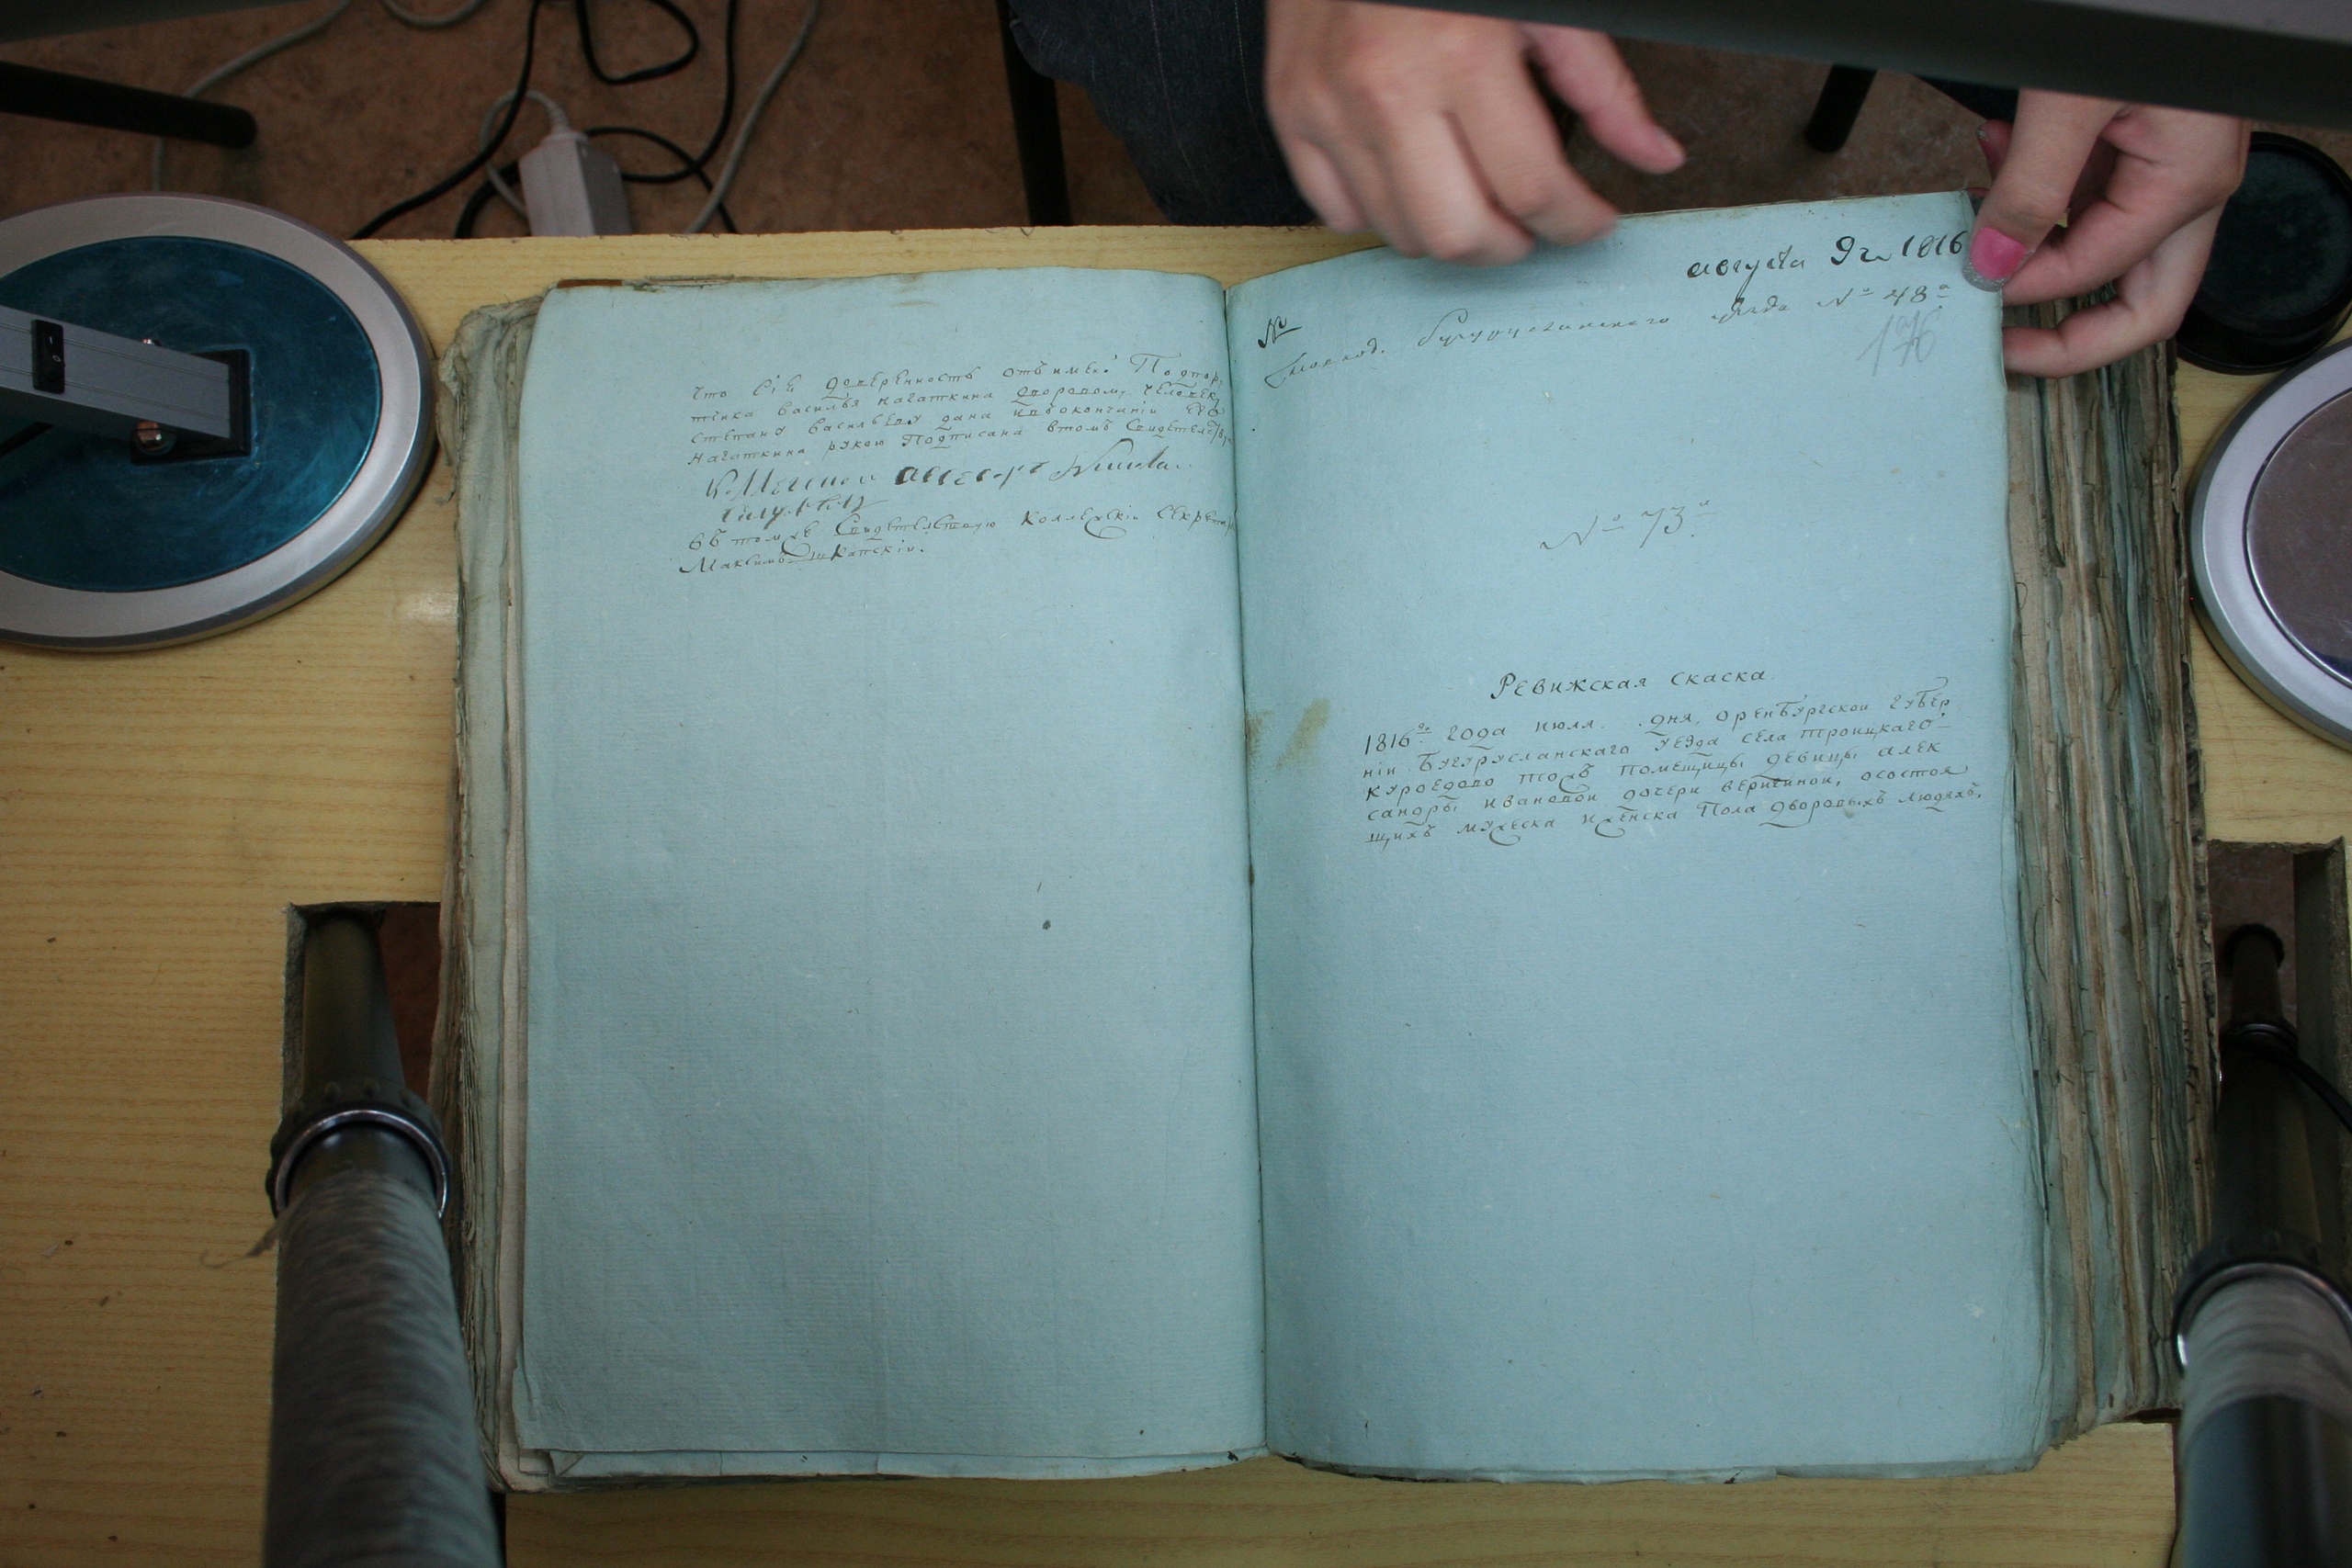 Что сіе доверенность отъ имені Подпору
тчика василья нагаткина дворовому человеку
степану васильеву дана ивъокончаніи его
нагаткина рукою Подписана втомъ Свидетельствую
Коллегской ассесоръ
въ томже Свидетельствую Коллежскій Секретарь
Максимъ
августа 9 1816
№
Бугурусланского уезда № 48а
176
№ 73й
Ревижская скаска
1816го года июля . дня, оренбургской губер
ніи Бугурусланскаго уезда села троицкаго
куроедово тожъ помещицы девицы алек
сандры ивановой дочери веригиной, осостоя
щихъ мужеска иженска Пола дворовыхъ людяхъ.